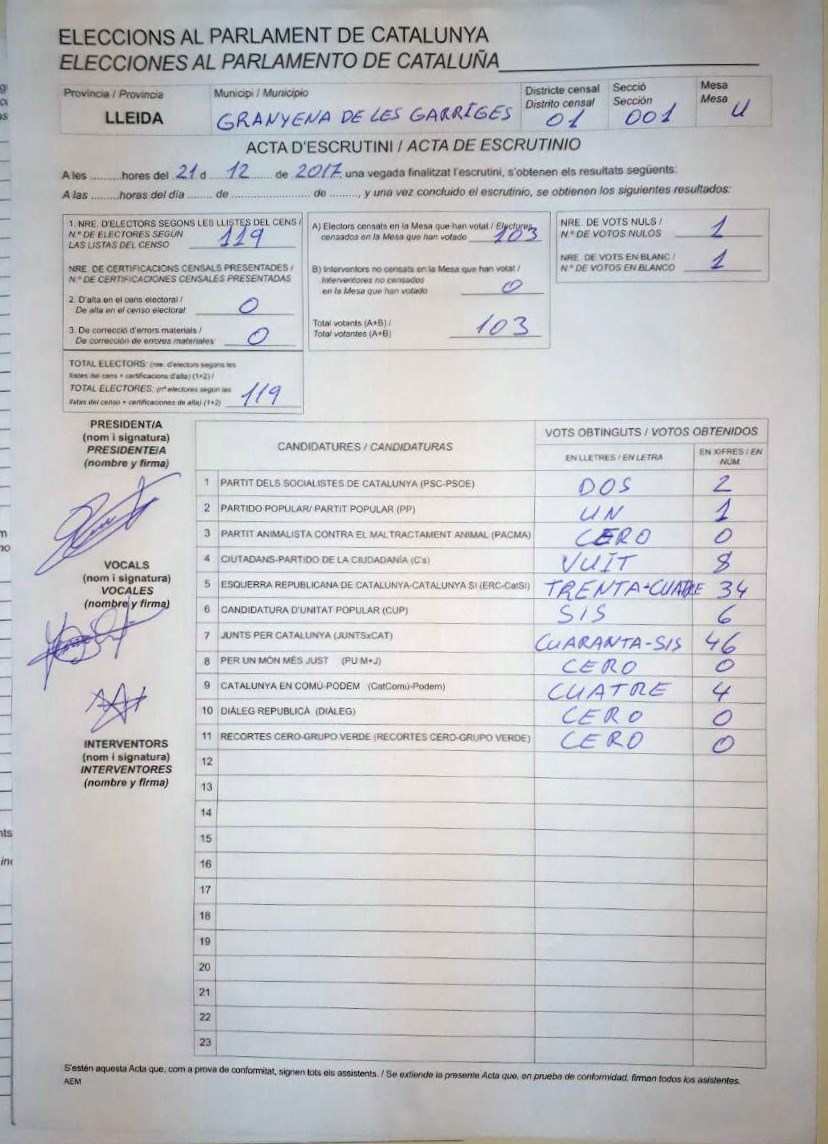 ELECCIONS AL PARLAMENT DE CATALUNYA
ELECCIONES AL PARLAMENTO DE CATALUÑA
Provincia / Provincia
LLEIDA
Municipi / Municipio
GRANYENA DE LES GARRIGES
Districte censal
Distrito censal
01
Secció
Sección
001
Mesa
Mesa
U
ACTA D'ESCRUTINI / ACTA DE ESCRUTINIO
A les .........hores del 21 d 12 de 2017, una vegada finalitzat l'escrutini, s'obtenen els resultats següents:
A las .........horas del día ....... de ..................... de ........., y una vez concluido el escrutinio, se obtienen los siguientes resultados:
1. NRE. D'ELECTORS SEGONS LES LLISTES DEL CENS /
N.º DE ELECTORES SEGÚN
LAS LISTAS DEL CENSO
119
NRE. DE CERTIFICACIONS CENSALS PRESENTADES /
N.º DE CERTIFICACIONES CENSALES PRESENTADAS
2. D'alta en el cens electoral /
De alta en el censo electoral:
0
3. De correcció d'errors materials /
De corrección de errores materiales:
0
TOTAL ELECTORS: (nre. d'electors segons les
llistes del cens + certificacions d'alta) (1+2) /
TOTAL ELECTORES: (nº electores según las
listas del censo + certificaciones de alta) (1+2)
119
A) Electors censats en la Mesa que han votat / Electores
censados en la Mesa que han votado
103
B) Interventors no censats en la Mesa que han votat /
Interventores no censados
en la Mesa que han votado
0
Total votants (A+B) /
Total votantes (A+B)
103
NRE. DE VOTS NULS /
N.º DE VOTOS NULOS
1
NRE. DE VOTS EN BLANC /
N.º DE VOTOS EN BLANCO
1
PRESIDENT/A
(nom i signatura)
PRESIDENTE/A
(nombre y firma)
VOCALS
(nom i signatura)
VOCALES
(nombre y firma)
INTERVENTORS
(nom i signatura)
INTERVENTORES
(nombre y firma)
CANDIDATURES / CANDIDATURAS
VOTS OBTINGUTS / VOTOS OBTENIDOS
EN LLETRES / EN LETRA
EN XIFRES / EN NÚM.
1 PARTIT DELS SOCIALISTES DE CATALUNYA (PSC-PSOE) DOS 2
2 PARTIDO POPULAR/ PARTIT POPULAR (PP) UN 1
3 PARTIT ANIMALISTA CONTRA EL MALTRACTAMENT ANIMAL (PACMA) CERO 0
4 CIUTADANS-PARTIDO DE LA CIUDADANÍA (C's) VUIT 8
5 ESQUERRA REPUBLICANA DE CATALUNYA-CATALUNYA SÍ (ERC-CatSí) TRENTA-CUATRE 34
6 CANDIDATURA D'UNITAT POPULAR (CUP) SIS 6
7 JUNTS PER CATALUNYA (JUNTSxCAT) CUARANTA-SIS 46
8 PER UN MÓN MÉS JUST (PUM+J) CERO 0
9 CATALUNYA EN COMÚ-PODEM (CatComú-Podem) CUATRE 4
10 DIÀLEG REPUBLICÀ (DIÀLEG) CERO 0
11 RECORTES CERO-GRUPO VERDE (RECORTES CERO-GRUPO VERDE) CERO 0
12
13
14
15
16
17
18
19
20
21
22
23
S'estén aquesta Acta que, com a prova de conformitat, signen tots els assistents. / Se extiende la presente Acta que, en prueba de conformidad, firman todos los asistentes.
AEM